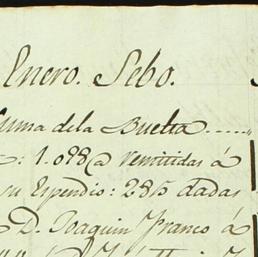 Enero. Sebo.
Suma dela Buelta......
@ remitidas á
su Espendio: 285 dadas
D. Joaquin Franco á